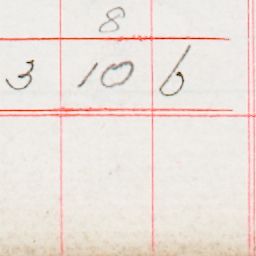 8
3 10 6